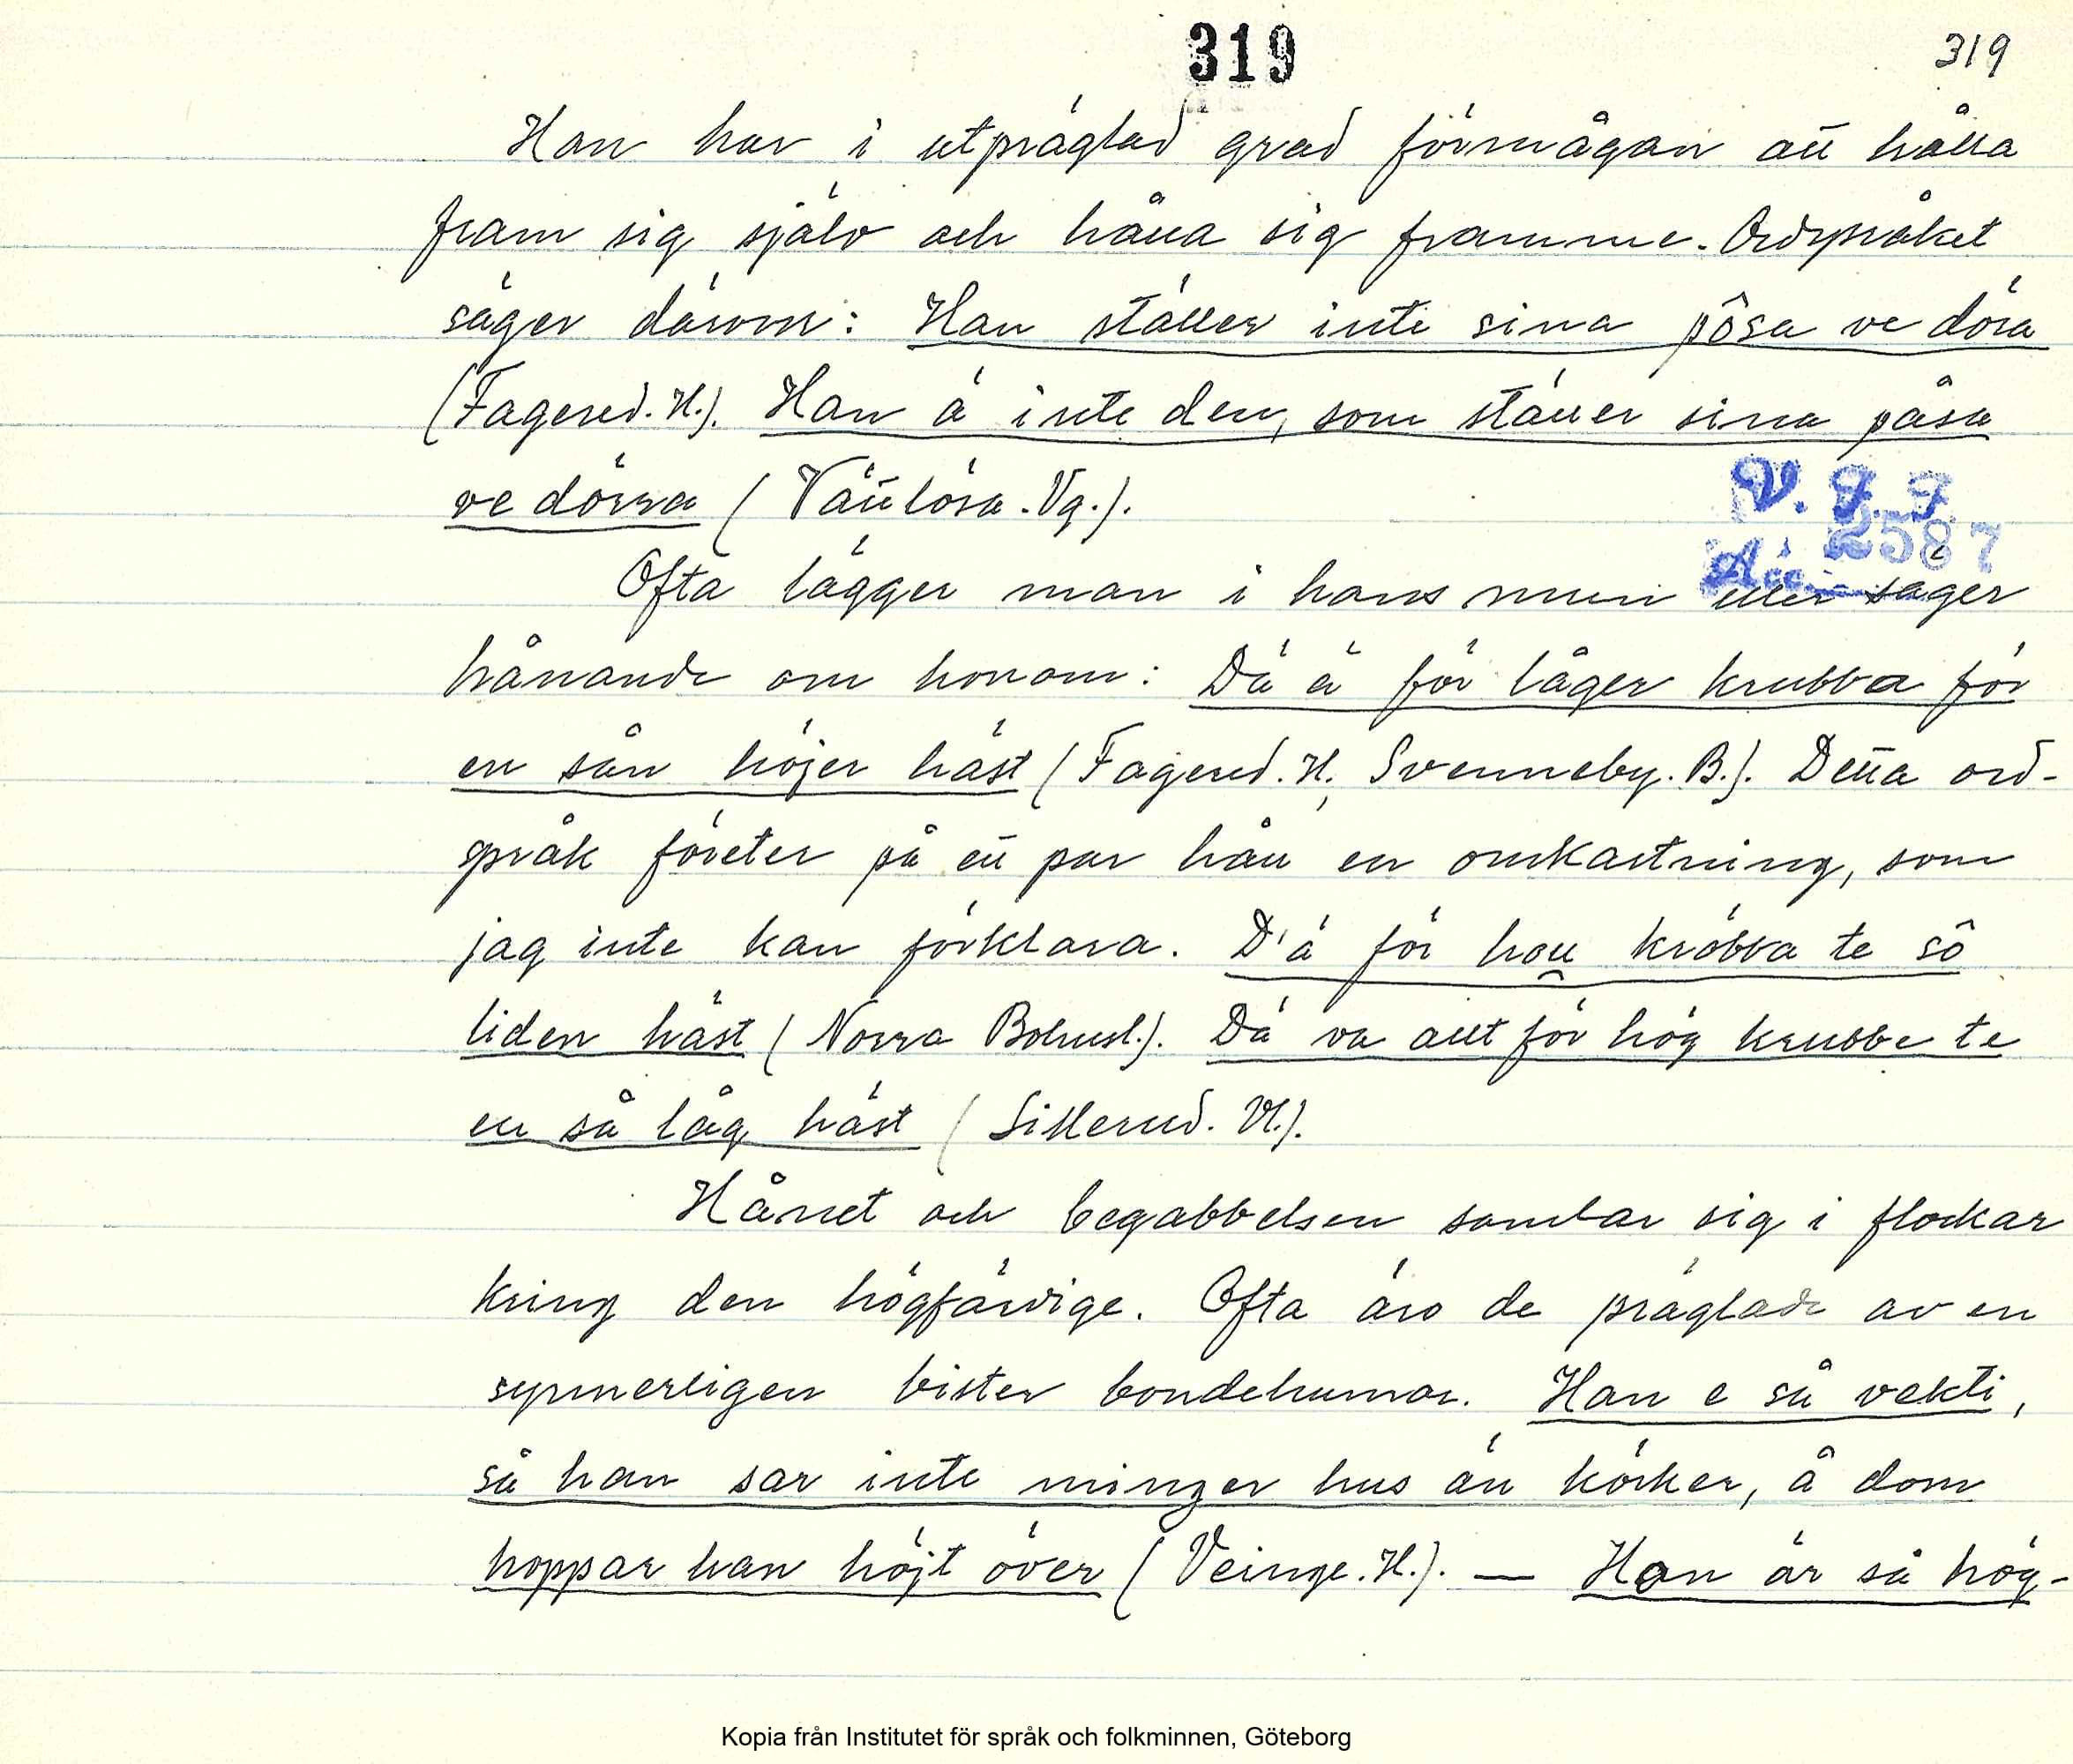 319
319
Han har i utpräglad grad förmågan att hålla
fram sig själv och hålla sig framme. Ordspråket
säger därom: Han ställer inte sina pôsa ve döra
(Fagered. H.). Han ä inte den, som ställer sina påsa
ve dörra (Vättlösa. Vg.).
V. F. F.
2587
Acc.
Ofta lägger man i hans mun eller säger
hånande om honom: Dä ä för låger krubba för
en sån höjer häst (Fagered. H., Svenneby. B.). Detta ord-
språk företer på ett par håll en omkastning, som
jag inte kan förklara. D'ä för hou kröbba te sô
liden häst (Norra Bohusl.). Dä va allt för hög krubbe te
en så låg häst (Sillerud. Vl.).
Hånet och begabbelsen samlar sig i flockar
kring den högfärdige. Ofta äro de präglade av en
synnerligen bister bondehumor. Han e så vekti,
så han sar inte minger hus än körker, å dom
hoppar han höjt över (Veinge. H.). — Han är så hög-
Kopia från Institutet för språk och folkminnen, Göteborg